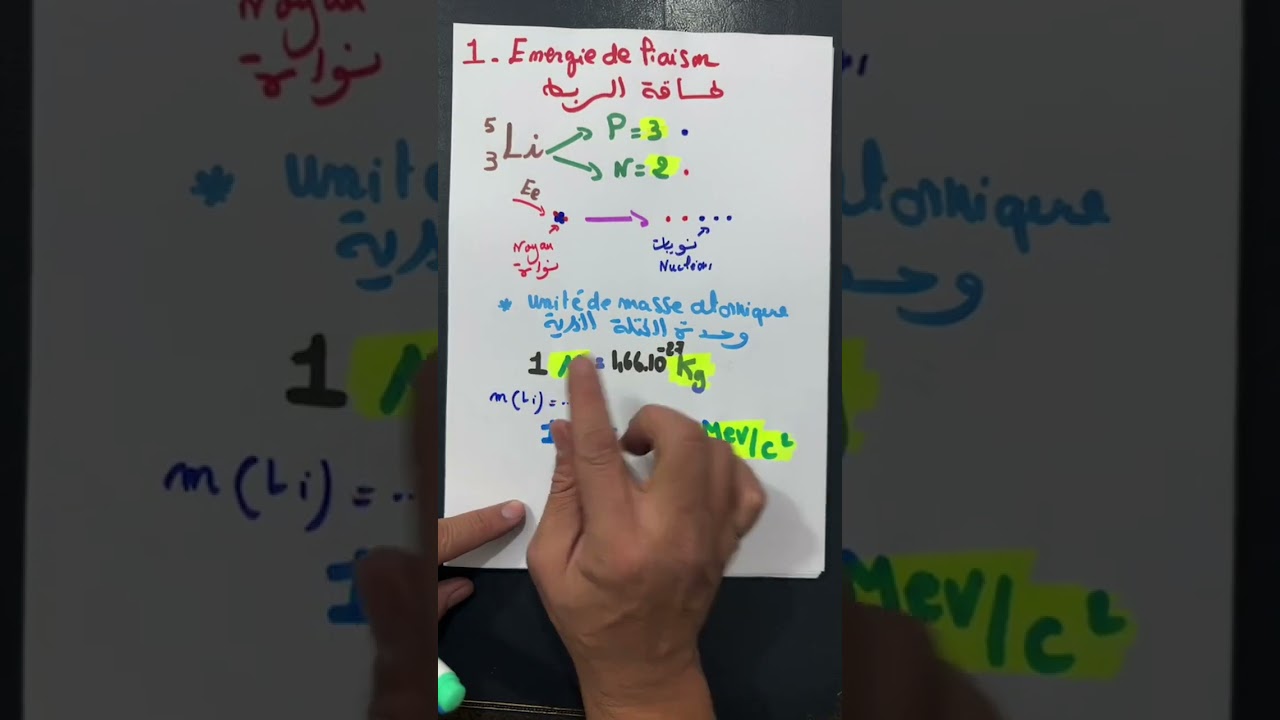 1. Energie de liaison
طاقة الربط
5
3 Li
P = 3
N = 2
El
Noyau
نواة
نويات
Nucléons
* unité de masse atomique
وحدة الكتلة الذرية
1 u = 1,66.10^-27 Kg
m(Li) = ...
1 MeV/c²